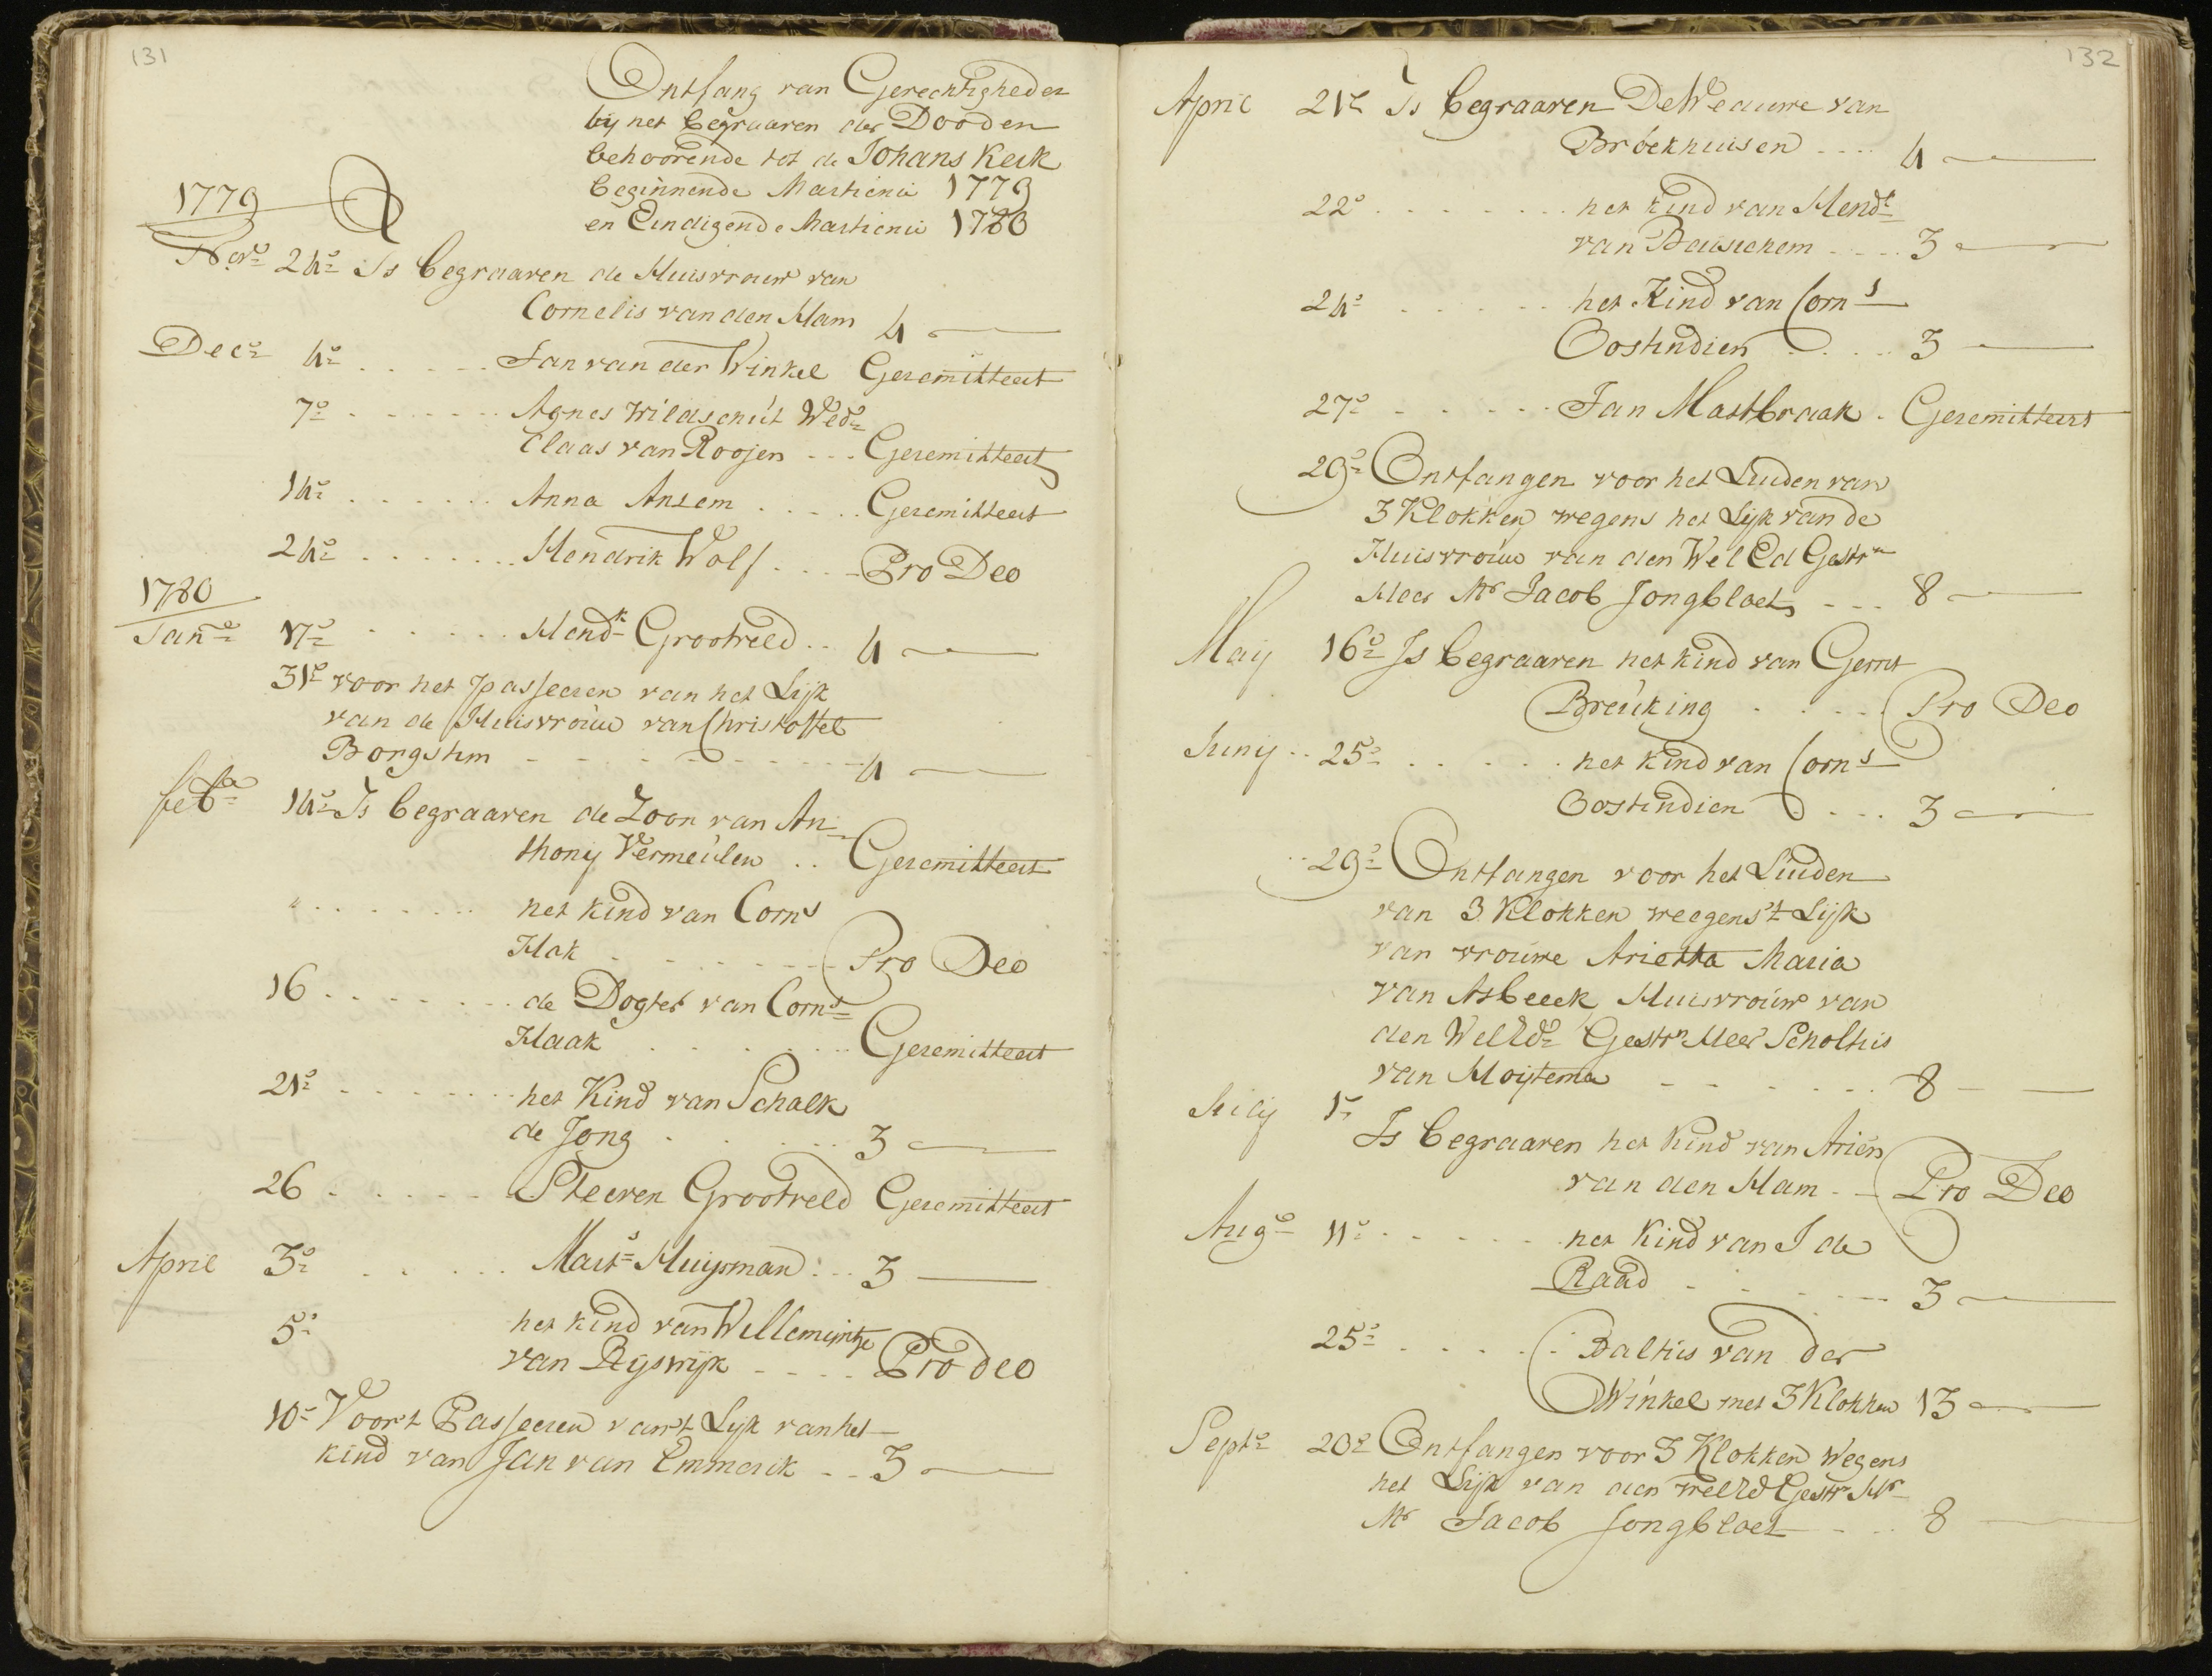 131
Ontfang van Geregtigheden
bij het begraaven der Dooden
behoorende tot de Johans Kerk
beginnende Martienie 1779
en Eindigende Martienie 1780
1779
Nov:e 24:e Is begraaven de Huisvrouw van
Cornelis van den Ham 4 —
Dec:e 4:e . . . . . Jan van der Winkel Geremitteert
7:e . . . . . . Agnes Wildschut Wed:e
Claas van Roojen - - - Geremitteert
14:e . . . . . . Anna Anzem . . . . . Geremitteert
24:e . . . . . . Hendrik Wolf . . . - Pro Deo
1780
Jan:e 17:e . . . . . Hend:k Grootveld . . 4 —
31:e voor het passeeren van het Lijk
van de Huisvrouw van Christoffel
Borgstim - - - - - - - - 4 —
feb:a 14:e Is begraaven de Zoon van An-
thonij Vermeulen . . Geremitteert
" . . . . . . . het kind van Corn:s
Hak - - - - - - - Pro Deo
16 . . . . . . . de Dogter van Corn:s
Haak . . . . . . Geremitteert
21:e . . . . . . . het Kind van Schalk
de Jong . . . . . 3 —
26 . . . . . Steeven Grootveld Geremitteert
April 3:e . . . . . Mart:s Huijsman . . . 3 —
5:e het kind van Willemijntje
van Rijswijk - - - - Pro deo
10:e Voor 't Passeeren van 't Lijk van het
kind van Jan van Emmerik - - 3 —
132
April 21:e Is begraaven De Weduwe van
Broekhuisen - - - - 4 —
22:e . . . . . . . het kind van Hend:k
van Beusichem - - - - 3 —
24:e . . . . . . het Kind van Corn:s
Oostindien . . . . 3 —
27:e - - - - - Jan Mastbraak . Geremitteert
29:e Ontfangen voor het Luiden van
3 Klokken wegens het Lijk van de
Huisvrouw van den Wel Ed Gestr:n
Heer Mr Jacob Jongbloet - - - 8 —
Maij 16:e Is begraaven het kind van Gerrit
Breuking . . . . Pro Deo
Junij . . 25:e . . . . . het kind van Corn:s
Oostindien . . . . 3 —
. . 29:e Ontfangen voor het Luiden
van 3 Klokken weegens 't Lijk
van vrouwe Arietta Maria
van Asbeeck Huisvrouw van
den WelEd:e Gestr:n Heer Scholtus
van Hoijtema - - - - - - 8 —
Julij 1:e
Is begraaven het kind van Ariën
van den Ham - - Pro Deo
Aug:e 11:e . . . . . . het kind van J de
Raad - - - - - - 3 —
25:e . . . . . Baltus van der
Winkel met 3 Klokken 13 —
Sept:e 20:e Ontfangen voor 3 Klokken Wegens
het Lijk van den welEd Gestr Hr
Mr Jacob Jongbloet - - - 8 —